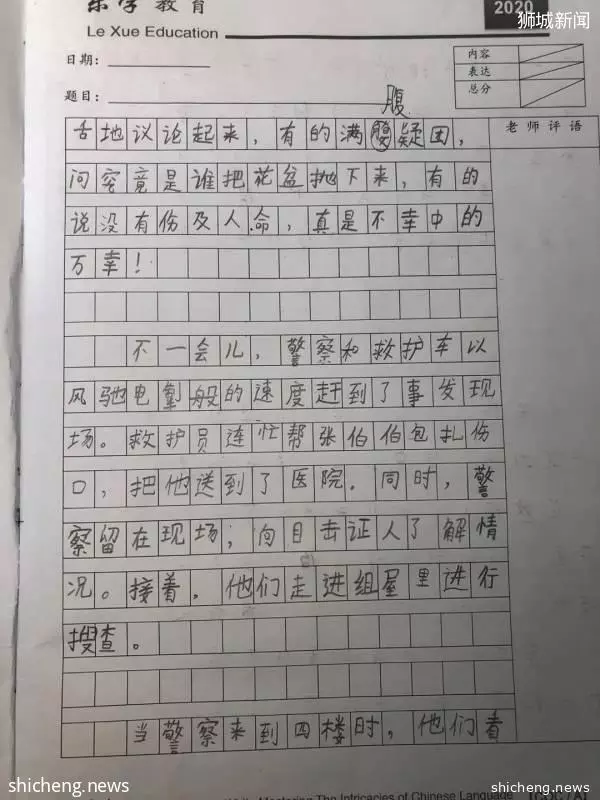 乐学教育
Le Xue Education
2020
狮城新闻
日期：
题目：
内容
表达
总分
老师评语
腹
舌地议论起来，有的满腹疑团，
问究竟是谁把花盆抛下来，有的
说没有伤及人命，真是不幸中的
万幸！
不一会儿，警察和救护车以
风驰电掣般的速度赶到了事发现
场。救护员连忙帮张伯伯包扎伤
口，把他送到了医院。同时，警
察留在现场，向目击证人了解情
况。接着，他们走进组屋里进行
搜查。
当警察来到四楼时，他们看
Mastering The Intricacies of Chinese Language
shicheng.news
shicheng.news